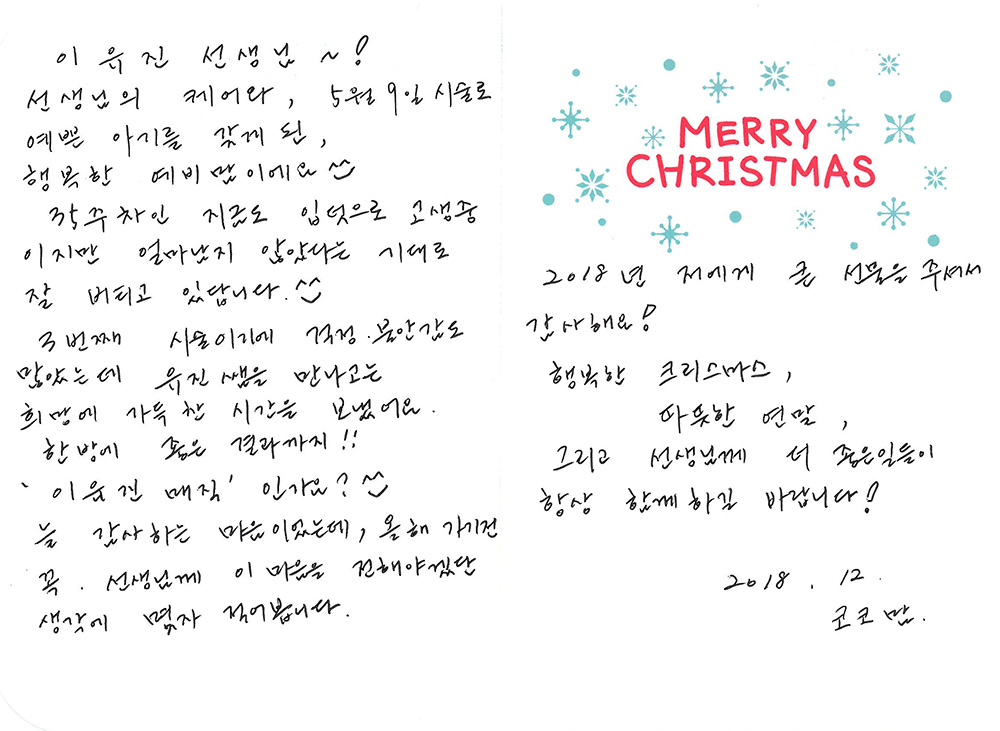 이유진 선생님 ~!
선생님의 케어와, 5월 9일 시술로
예쁜 아기를 갖게 된,
행복한 예비맘이에요 ^^
35주차인 지금도 입덧으로 고생중
이지만 얼마남지 않았다는 기대로
잘 버티고 있답니다. ^^
3번째 시술이기에 걱정.불안감도
많았는데 유진쌤을 만나고는
희망에 가득찬 시간을 보냈어요.
한방에 좋은 결과까지!!
'이유진 매직' 인가요? ^^
늘 감사하는 마음이었는데, 올해 가기전
꼭. 선생님께 이 마음을 전해야겠단
생각에 몇자 적어봅니다.
MERRY
CHRISTMAS
2018년 저에게 큰 선물을 주셔서
감사해요!
행복한 크리스마스,
따뜻한 연말,
그리고 선생님께 더 좋은일들이
항상 함께하길 바랍니다!
2018. 12.
코코맘.